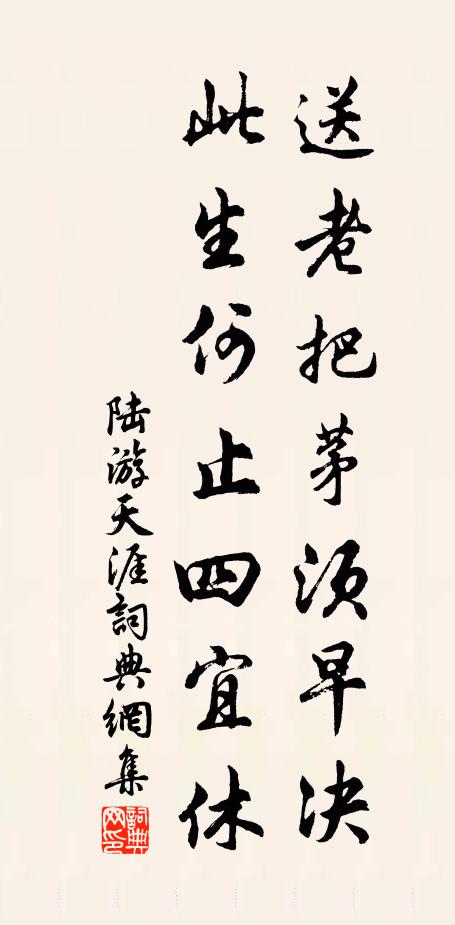 送老把茅須早決
此生何止四宜休
陸游天涯詞典網集
詞典網印